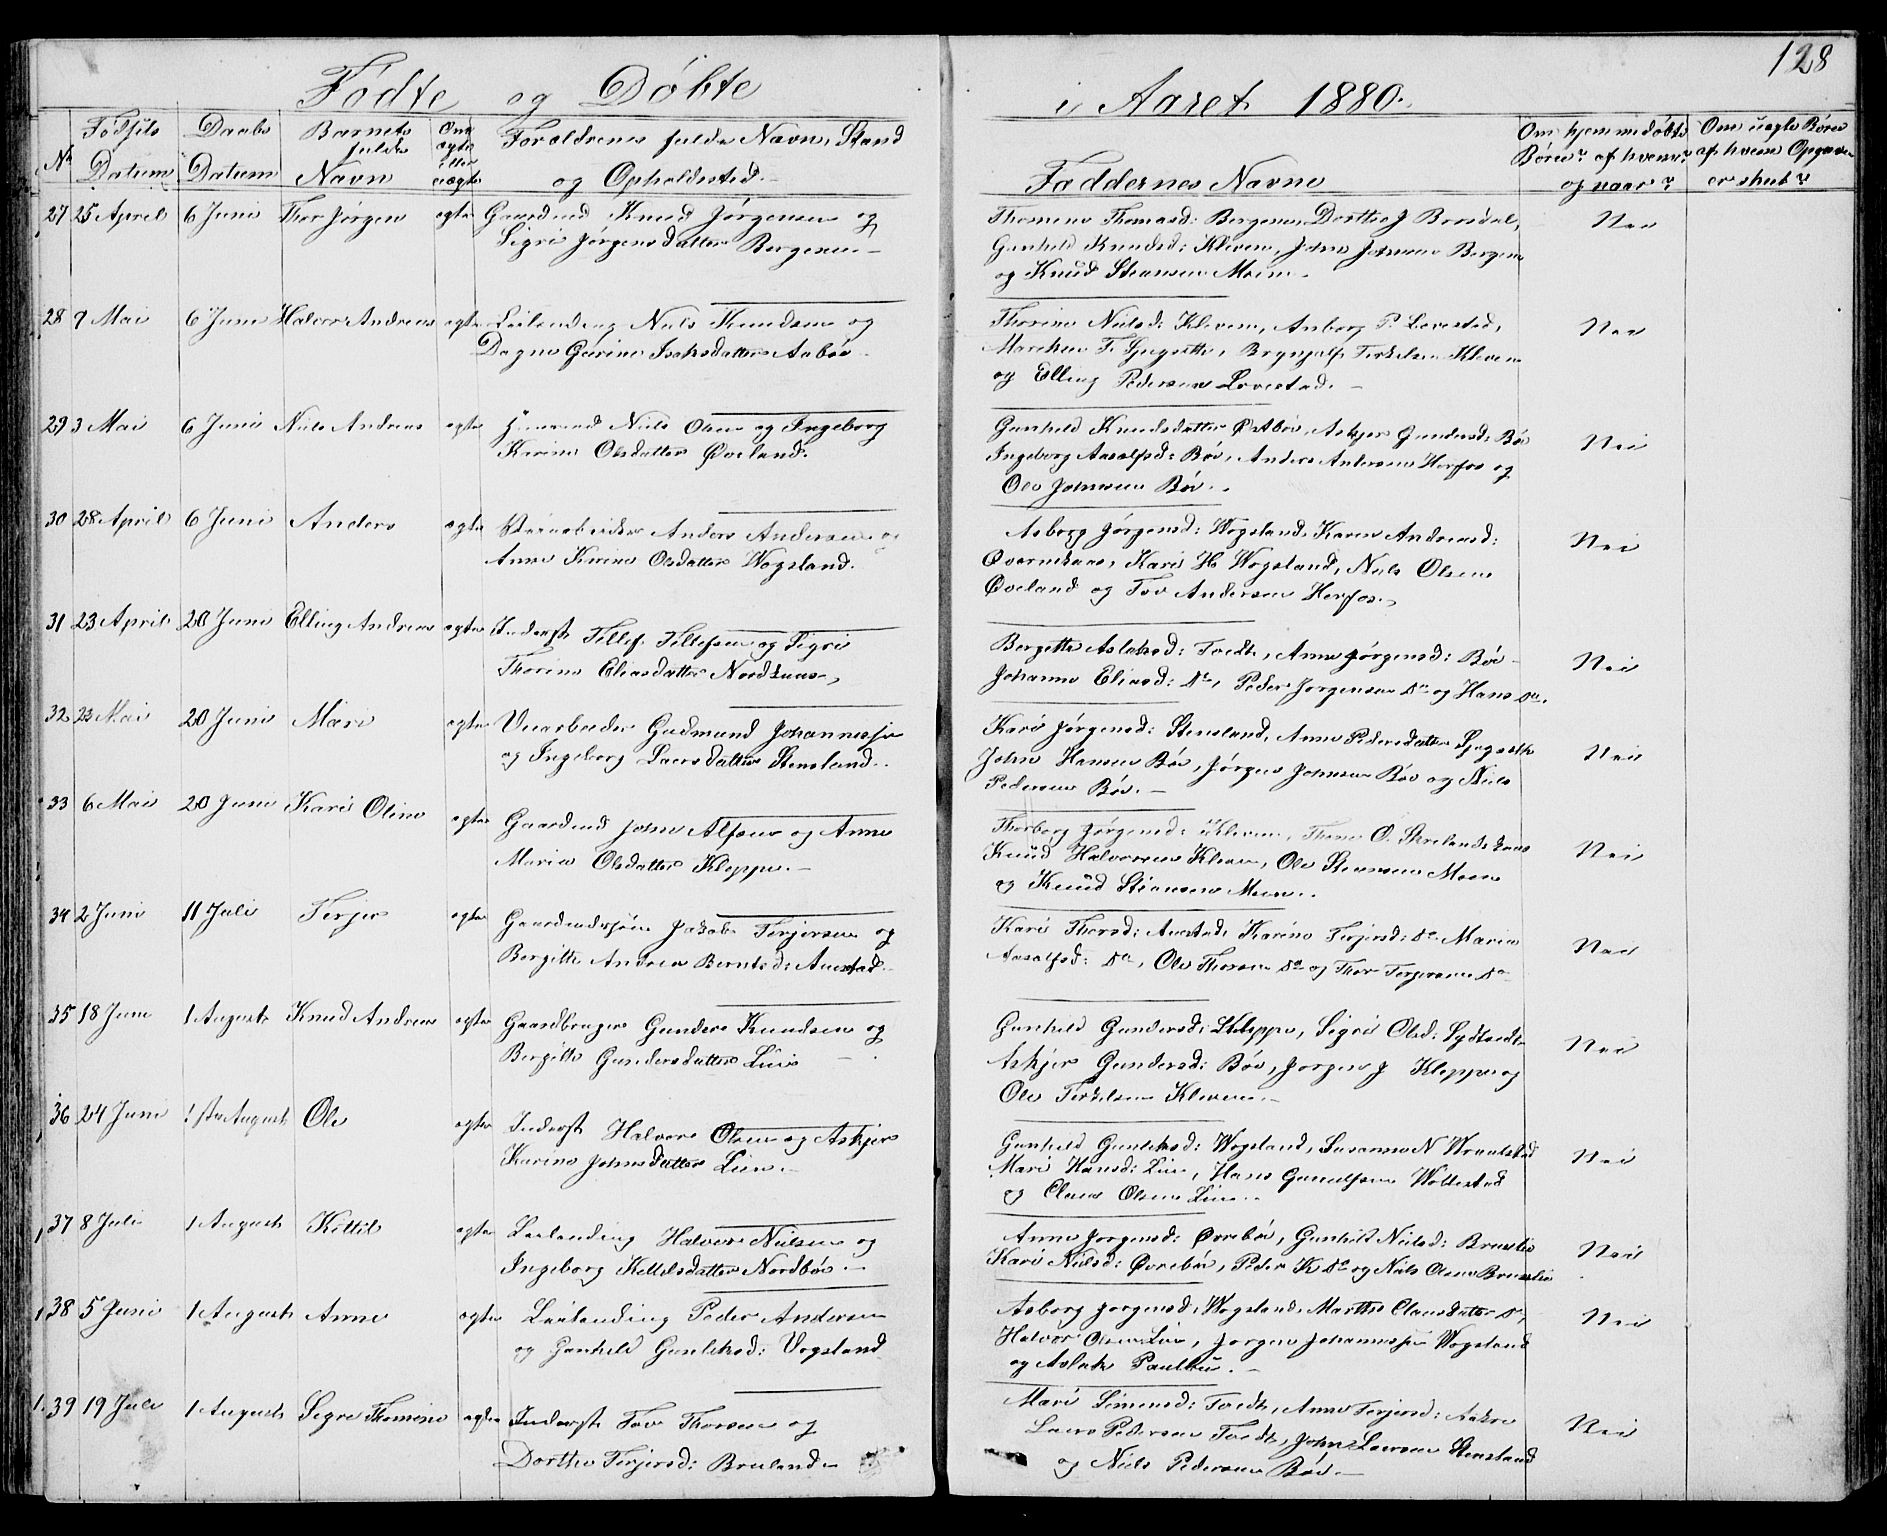 128
Fødte og Døbte i Aaret 1880.
No
Fødsels Datum
Daabs Datum
Barnets fulde Navn
Om ægte eller uægte
Forældrenes fulde Navn, Stand og Opholdssted.
Faddernes Navne
Om hjemmedøbte Børn? af hvem? og naar?
Om uægte Børn af hvem Opgaven er skeet?
27 25 April 6 Juni Thor Jørgen ægte Gaardmd Knud Jørgensen og
Sigri Jørgensdatter Bergene
Thomine Thomasd: Bergene, Dorthe J Brosdal,
Gunhild Knudsd: Kleven, John Johnsen Bergene
og Knud Stensen Moen.
Nei
28 7 Mai 6 Juni Halvor Andreas ægte Leilending Niels Knudsen og
Dagne Gurine Isaksdatter Aabøe
Thorine Nielsd: Kleven, Anborg P. Lovestad,
Mareken T. Ljugseth, Brynjulf Terkelsen Kleven
og Elling Pedersen Lovestad.
Nei
29 3 Mai 6 Juni Niels Andreas ægte Niels Olsen og Ingeborg
Karine Olsdatter Øveland.
Gunhild Knudsdatter Østbøe, Askjer Gundersd: Bøe
Ingeborg Aasolfsd: Bøe, Anders Andersen Herfos og
Ole Johnsen Bøe.
Nei
30 28 April 6 Juni Anders ægte Anders Andersen og
Anne Karine Olsdatter Wogsland.
Asborg Jørgensd: Wogsland, Karen Andreasd:
Qvernekaas, Kari H. Wogsland, Niels Olsen
Øveland og Tov Andersen Herfos.
Nei
31 23 April 20 Juni Elling Andreas ægte Inderst Tellef Tellefsen og Sigri
Thorine Eliasdatter Nordkaas
Bergette Aslaksd: Tvedt, Anne Jørgensd: Bøe
Johanne Eliasd: Do, Peder Jørgensen Do og Hans Do.
Nei
32 23 Mai 20 Juni Mari ægte Gudmund Johannessen
og Ingeborg Laersdatter Stensland.
Kari Jørgensd: Stensland, Anne Pedersdatter Ljugseth
John Hansen Bøe, Jørgen Johnsen Bøe og Niels
Pedersen Bøe.
Nei
33 6 Mai 20 Juni Kari Oline ægte Gaardmd John Alfsen og Anne
Maria Olsdatter Kleppe.
Thorborg Jørgensd: Kleven, Thone O.
Knud Halvorsen Kleven, Ole Stensen Moen
og Knud Stensen Moen.
Nei
34 2 Juni 11 Juli Terjer ægte Gaardmdssøn Jakob Terjersen og
Bergitte Andrea Berntsd: Austad
Kari Thorsd: Austad, Karine Terjersd: Do Maria
Aasolfsd: Do, Ole Thorsen Do og Thor Terjersen Do
Nei
35 18 Juni 1 August Knud Andreas ægte Gaardbruger Gunder Knudsen og
Bergitte Gundersdatter Lien
Gunhild Gundersd: Kleppe, Sigri Olsd: Sydtvedt
Askjer Gundersd: Bøe, Jørgen J Kleppe og
Ole Terkelsen Kleven.
Nei
36 24 Juni 1ste August Ole ægte Inderst Halvor Olsen og Askjer
Karine Johnsdatter Lien.
Gunhild Gunleksd: Wogsland, Susanne N Wraalstad
Mari Hansd: Lien, Hans Gunulfsen Wollestad
og Claus Olsen Lien.
Nei
37 8 Juli 1 August Kittil ægte Leilending Halvor Nielsen og
Ingeborg Kittilsdatter Nordbøe.
Anne Jørgensd: Øvrebøe, Gunhild Nielsd: Bruslie
Kari Nielsd: Øvrebøe, Peder K Do og Niels Olsen Brusslie
Nei
38 5 Juni 1 August Anne ægte Leilending Peder Andersen
og Gunhild Gunleksd: Vogsland
Asborg Jørgensd: Wogsland, Marthe Clausdatter Do,
Halvor Olsen Lien, Jørgen Johannessen Wogsland
og Aslak Paulsen.
Nei
39 19 Juli 1 August Segre Thomine ægte Inderst Tov Thorsen og
Dorthe Terjersd: Breland
Mari Simensd: Tvedt, Anne Terjersd: Askre
Laers Pedersen Tvedt, John Laersen Stensland
og Niels Pedersen Bøe.
Nei